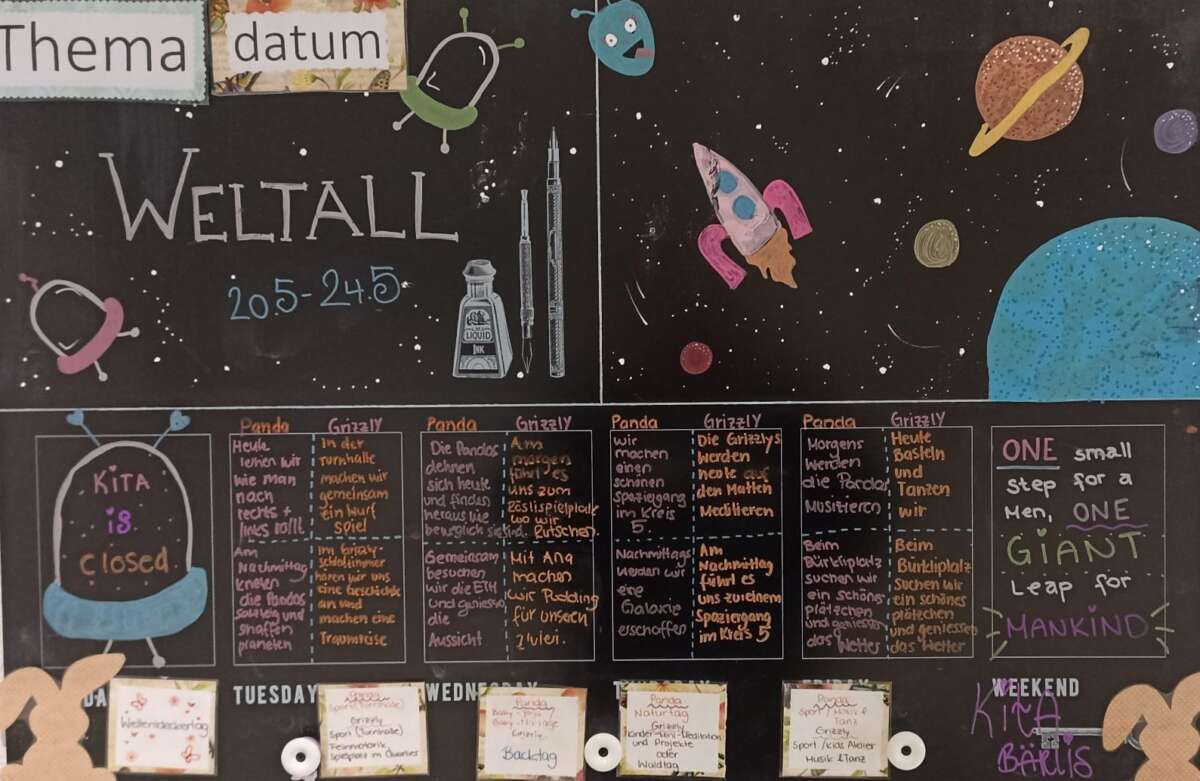 Thema
datum
WELTALL
20.5 - 24.5
LIQUID
INK
KITA
is
closed
Panda
Heute
lernen wir
wie man
nach
rechts +
links rollt
Am
Nachmittag
kneten
die Pandas
Salzteig und
schaffen
planeten
Grizzly
In der
turnhalle
machen wir
gemeinsam
ein Wurf
spiel
Im Grizzly-
schlafzimmer
hören wir uns
eine Geschichte
an und
machen eine
Traumreise
Panda
Die Pandas
dehnen
sich heute
und finden
heraus wie
beweglich sie sind.
Gemeinsam
besuchen
wir die ETH
und geniessen
die
Aussicht
Grizzly
Am
morgen
führt es
uns zum
wo wir
Rutschen
Mit Ana
machen
wir Pudding
für unsern
Zvieri.
Panda
wir
machen
einen
schönen
spaziergang
im Kreis
5
Nachmittags
werden wir
eine
Galaxie
erschaffen
Grizzly
Die Grizzlys
werden
heute auf
den Matten
Meditieren
Am
Nachmittag
führt es
uns zu einem
Spaziergang
im Kreis 5
Panda
Morgens
werden
die Pandas
musizieren
Beim
Bürkliplatz
suchen wir
ein schönes
plätzchen
und geniessen
das Wetter
Grizzly
Heute
Basteln
und
Tanzen
wir
Beim
Bürkliplatz
suchen wir
ein schönes
plätzchen
und geniessen
das Wetter
ONE small
step for a
Men, ONE
GIANT
Leap for
MANKIND
TUESDAY
WEDNESDAY
WEEKEND
Weltentdeckertag
Panda
Sport (Turnhalle)
Grizzly
Sport (Turnhalle)
Feinmotorik
Spielplatz im Quartier
Panda
Backtag
Panda
Naturtag
Grizzly
Kinder-Mini-Meditation
und Projekte
oder
Waldtag
Panda
Sport / Musik &
Tanz
Grizzly
Sport / Kids Atelier
Musik & Tanz
KiTA
BÄRLIS